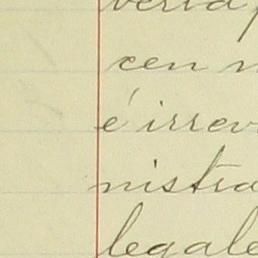 veria
cen n
é irrev
nistra
legale